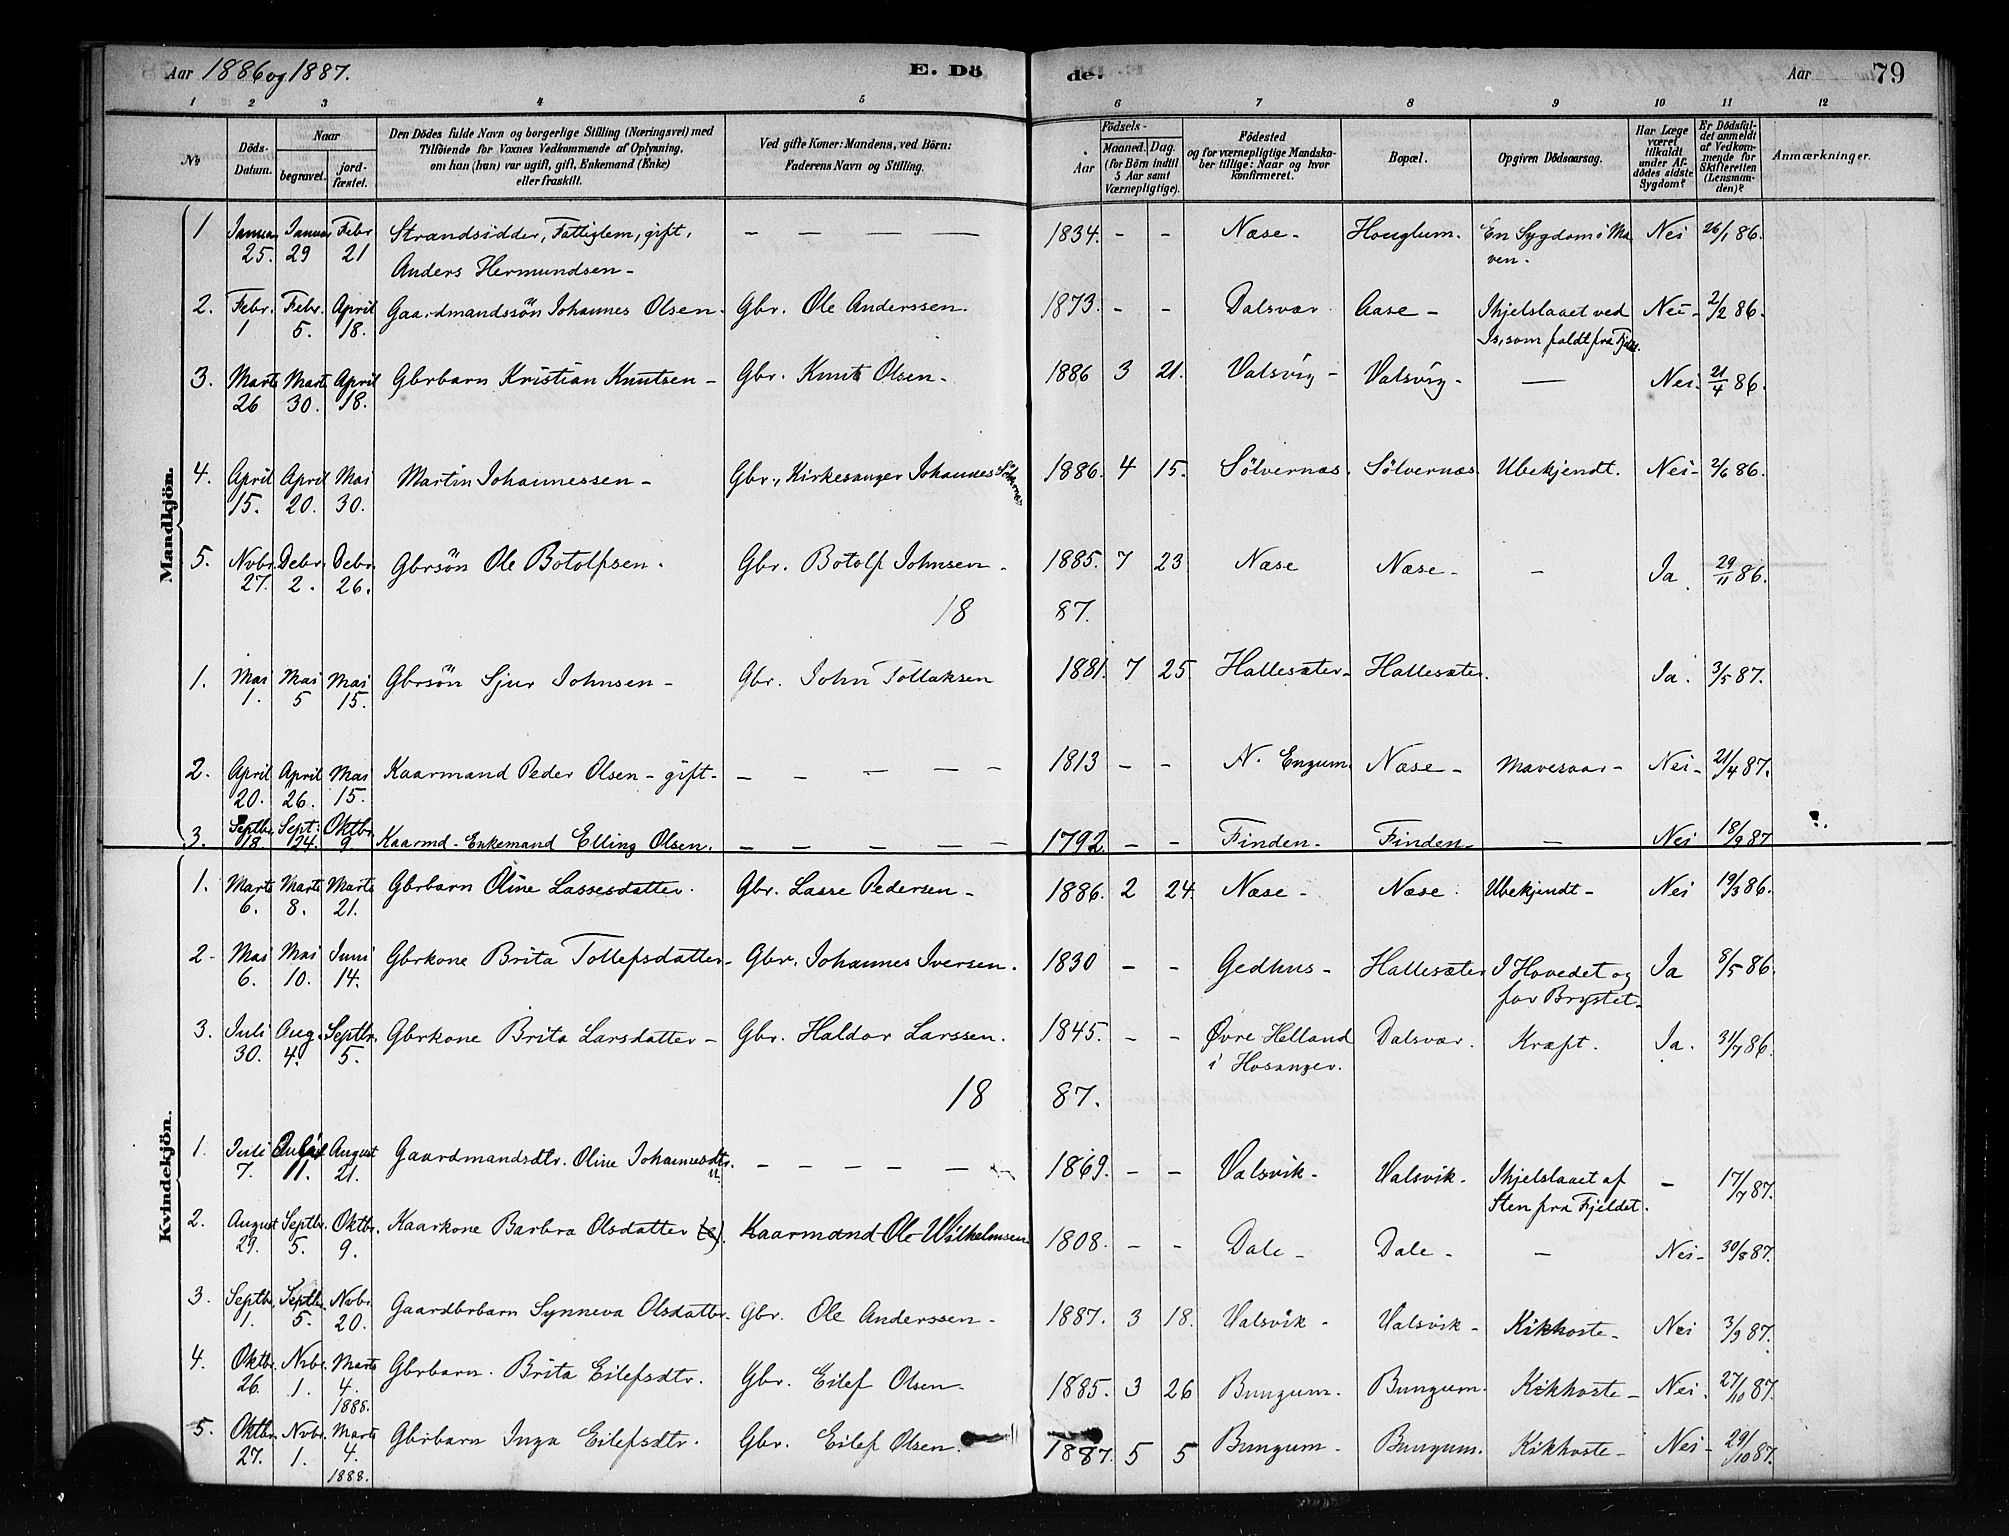 Aar 1886 og 1887. E. Dö de. Aar 79
1 2 3 4 5 6 7 8 9 10 11 12
No
Döds-Datum.
Naar
begravet.
jord-fæstet.
Den Dödes fulde Navn og borgerlige Stilling (Næringsvei) med
Tilföiende for Voxnes Vedkommende af Oplysning,
om han (hun) var ugift, gift, Enkemand (Enke)
eller fraskilt.
Ved gifte Koner: Mandens, ved Börn:
Faderens Navn og Stilling.
Födsels-
Aar
Maaned. Dag.
(for Börn indtil
5 Aar samt
Værnepligtige).
Födested
og for værnepligtige Mandska-
ber tillige: Naar og hvor
konfirmeret.
Bopæl.
Opgiven Dödsaarsag.
Har Læge
været
tilkaldt
under Af-
dödes sidste
Sygdom?
Er Dödsfal-
det anmeldt
af Vedkom-
mende for
Skifteretten
(Lensman-
den)?
Anmærkninger.
Mandkjön.
1 Januar 25. Januar 29 Febr 21 Strandsidder, Fattiglem, gift, — — — — 1834. - - Næse - Houglum. En Sygdom i Ma Nei 26/1 86.
Anders Hermundsen - ven.
2. Febr. 1 Febr. 5. April 18. Gaardmandssön Johannes Olsen. Gbr. Ole Anderssen. 1873. - - Dalsvær Aase - Ihjelslaaet ved Nei - 2/2 86.
Is, som faldt fra
3. Marts 26 Marts 30. April 18. Gbrbarn Kristian Knutsen - Gbr. Knut Olsen - 1886 3 21. Valsvig - Valsvig - — Nei. 21/4 86.
4. April 15. April 20. Mai 30. Martin Johannessen - Gbr., Kirkesanger Johannes 1886. 4 15. Sölvernæs. Sölvernæs. Ubekjendt. Nei - 2/6 86.
5. Novbr. 27. Debr. 2. Debr. 26. Gbrsön Ole Botolfsen. Gbr. Botolf Johnsen - 1885. 7 23 Næse Næse - - Ja. 29/11 86.
18 87.
1. Mai 1. Mai 5 Mai 15. Gbrsön Sjur Johnsen - Gbr. John Tollaksen 1881. 7 25. Hallesæter - Hallesæter. Ja. 3/5 87.
2. April 20. April 26. Mai 15. Kaarmand Peder Olsen - gift - — — — — — 1813 - - N. Engum. Næse - Mavesaar - Nei - 21/4 87.
3. Septbr. 18 Sept: 24. Oktbr. 9 Kaarmd - Enkemand Elling Olsen. — — — — — 1792. - - Finden - Finden - — Nei 18/9 87
Kvindekjön.
1. Marts 6. Marts 8. Marts 21. Gbrbarn Oline Lassesdatter. Gbr. Lasse Pedersen - 1886. 2 24. Næse - Næse. Ubekjendt - Nei 19/3 86.
2 - Mai 6. Mai 10. Juni 14. Gbrkone Brita Tollefsdatter - Gbr. Johannes Iversen. 1830 - - Gedhus - Hallesæter I Hovedet og Ja 8/5 86.
for Brystet -
3. Juli 30. Aug. 4. Septbr. 5. Gbrkone Brita Larsdatter - Gbr. Haldor Larssen. 1845. - - Øvre Helland Dalsvær. Kræft. Ja. 31/7 86.
i Hosanger.
18 87.
1. Juli 7. 11. August 21. Gaardmandsdtr. Oline Johannesdtr. — — — — — 1869. - - Valsvik - Valsvik. Ihjelslaaet af — 17/7 87.
Sten fra Fjeldet.
2. August 29. Septbr. 5. Oktbr. 9. Kaarkone Barbra Olsdatter (e). Kaarmand Ole Wilhelmsen 1808. - - Dale - Dale - — Nei - 30/8 87.
3. Septbr. 1. Septbr. 5. Novbr. 20. Gaardbrbarn Synneva Olsdatter. Gbr. Ole Anderssen - 1887. 3 18. Valsvik - Valsvik - Kikhoste - Nei 3/9 87.
4. Oktbr. 26. Nvbr. 1. Marts 4. 1888. Gbrbarn. Brita Eilefsdtr. Gbr. Eilef Olsen - 1885. 3 26 Bungum. Bungum. Kikhoste - Nei. 27/10 87.
5. Oktbr. 27. Nvbr. 1. Marts 4. 1888. Gbrbarn Inga Eilefsdtr. Gbr. Eilef Olsen. 1887. 5 5 Bungum - Bungum. Kikhoste - Nei - 29/10 87.